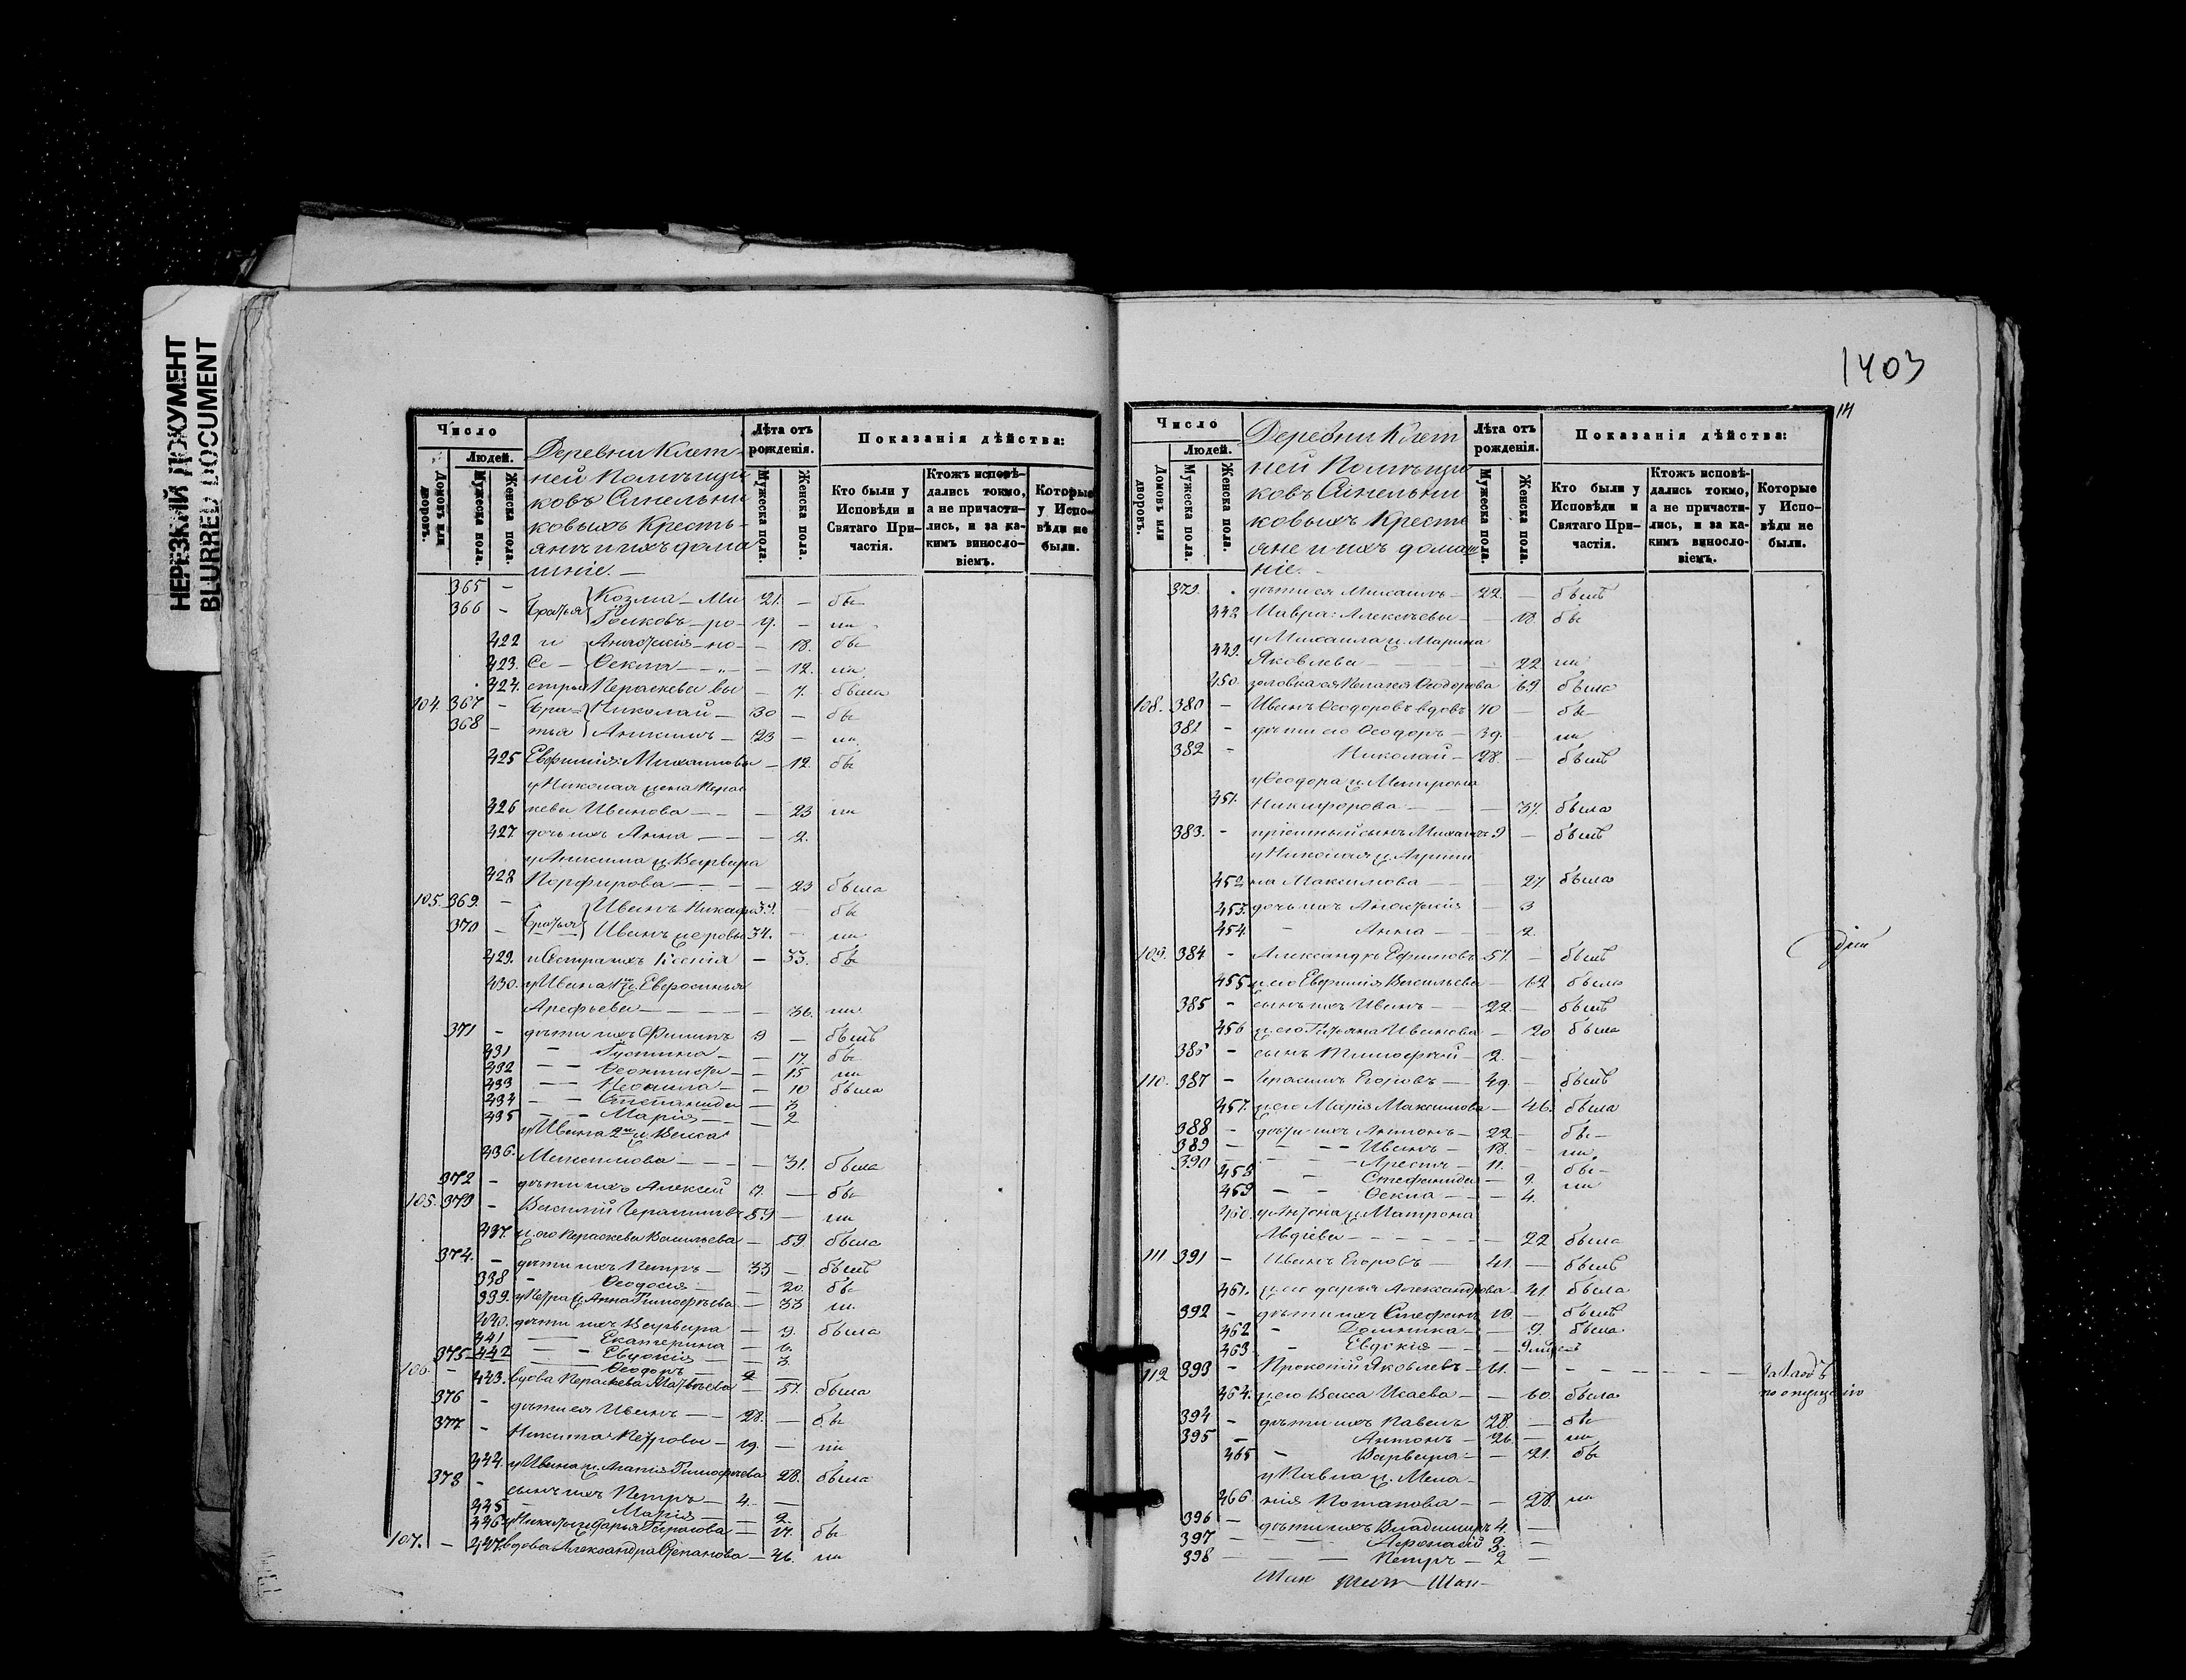 НЕРЕЗКИЙ ДОКУМЕНТ
BLURRED DOCUMENT
Число
Людей.
Домовъ или дворовъ.
Мужеска пола.
Женска пола.
Деревни Клет-
ней Помѣщи
ковъ Синельни
ковыхъ Кресть-
янъ и ихъ дома
шніе. —
Лѣта отъ рожденія.
Мужеска пола.
Женска пола.
Показанія дѣйства:
Кто были у Исповѣди и Святаго При-частія.
Ктожъ исповѣ-дались токмо, а не причасти-лись, и за ка-кимъ виносло-віемъ.
Которые у Испо-вѣди не были.
365 — Козма — Ми 21. — бы
366 — братья —ро— — ли
422 и Анастасія — но — — 18. бы
423. Се — Ѳекла — — 12. ли
424. стры Параскева вы — 7. была
104 367 — Бра= Николай — 30 — бы
368 — тья — 23 — ли
425 Евфимія Михаилова — 12. бы
у Николая жена Парас
426 кева Иванова — — — 23 ли
427. дочь ихъ Анна — — — 2.
у Анисима ж. Варвара
428 Порфирова — — — — 23 была
105. 369. — Иванъ Никифо 39. — бы
370 — братья Иванъ ровы 34. — ли
429. и Сестра ихъ Ксенія — 33. бы
430. у Ивана 1го ж. Евфросинья
Арефьева — — — — — 36. ли
371 — дѣти ихъ Филипъ 9 — былъ
431 — Іустина — — 17. бы
432 — Ѳеоктиста — — 15 ли
433 — — — — 10 была
434 — — Степанида — 3
435 — — Марія — — 2
у Ивана 2го ж. Васса
436. Максимова — — — — 31. была
372 — дѣти ихъ Алексей 7. — бы
105. 373 — Василій Герасимовъ 59 — ли
437. ж. его Параскева Васильева — 59. была
374. — дѣти ихъ Петръ — 33 — былъ
438 — Ѳеодосія — — 20. бы
439. у Петра ж. Анна Тимофѣева — 33 ли
440. дѣти ихъ Варвара — 9. была
441 — Екатерина — 6.
442 — Евдокія — — 3
375 — Ѳеодоръ — 2 —
106. — 443. вдова Параскева Матвѣева — 57. была
376 — дѣти ея Иванъ — — 28. — бы
377 — Никита Петровы — 19. — ли
444. у Ивана ж. Агапія Тимофѣева 28. была
378 — сынъ ихъ Петръ — 4. —
445 — Марія — — 2.
446. у Никиты ж. Дарья — 17. бы
107. — 447. вдова Александра Степанова — 46. ли
1403
Число
Людей.
Домовъ или дворовъ.
Мужеска пола.
Женска пола.
Деревни Клет
ней Помѣщи
ковъ Синельни
ковыхъ Кресть
яне и ихъ домаш
ніе. —
Лѣта отъ рожденія.
Мужеска пола.
Женска пола.
Показанія дѣйства:
Кто были у Исповѣди и Святаго При-частія.
Ктожъ исповѣ-дались токмо, а не причасти-лись, и за ка-кимъ виносло-віемъ.
Которые у Испо-вѣди не были.
379. дѣти ея Михаилъ — 22. — былъ
448 Мавра: Алексѣевы — — 18 бы
у Михаила ж. Марина
449. Яковлева — — — — 22 ли
450. золовка ея Пелагея Ѳеодорова 69. была
108. 380 — Иванъ Ѳеодоровъ вдовъ 70 — бы
381 — дѣти его Ѳеодоръ — 39. — ли
382 — Николай — 28. — былъ
у Ѳеодора ж. Матрона
451. Никифорова — — — 37. была
383. — пріемный сынъ Михаилъ 9 — былъ
у Николая ж. Агрипи
452 на Максимова — — — 27 была
453. дочь ихъ Анастасія — 3
454. — Анна — — — 2.
109. 384 — Александръ Ефимовъ 57. — былъ
455 ж. его Евфимія Васильева — 62 была
385 — сынъ ихъ Иванъ — 22. — былъ
456 ж. его Татьяна Иванова — 20 была
386 — сынъ Тимофей — 2. —
110. 387 — Герасимъ Егоровъ — 49. — былъ
457. ж. его Марія Максимова — 46. была
388 — дѣти ихъ Антонъ — 22 — бы
389 — — — Иванъ — 18. — ли
390 — — — — 11. — бы
458 — Стефанида — 9. ли
459 — — Ѳекла — — 4.
460. у Антона ж. Матрона
Авдіева — — — — — 22 была
111 391 — Иванъ Егоровъ — 41. — былъ
461. ж. его Дарья Александрова 41 была
392 — дѣти ихъ Стефанъ 10. — былъ
462 — Домника — — 9. была
463 — Евдокія — — 9
112 393 — Прокопій Яковлевъ — 61. — — — —
по опущенію
464. ж. его Васса Исаева — — 60. была
394 — дѣти ихъ Павелъ 28. — бы
395 — Антонъ — 26. — ли
465 — Варвара — — 21. бы
у Павла ж. Мела-
466. нія Потапова — — 28. ли
396 — дѣти ихъ Владимиръ 4. —
397 — — Афонасій 3. —
398 — — Петръ — 2 —